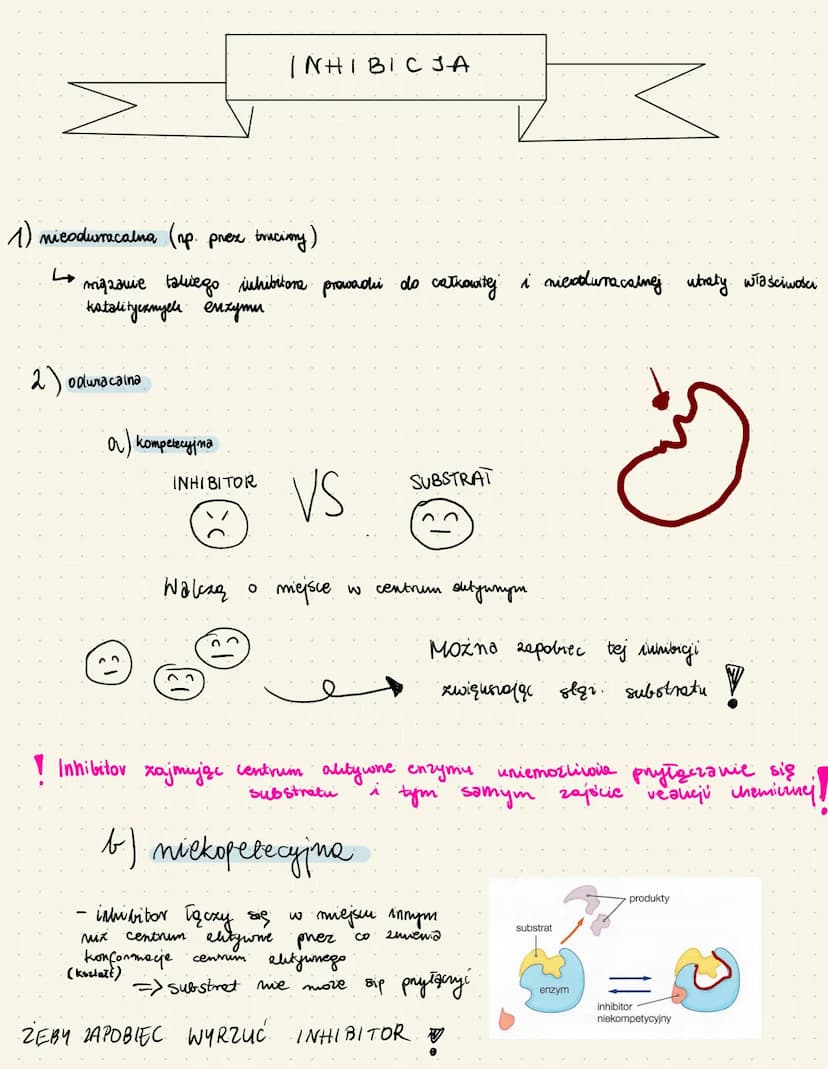 INHIBICJA
1) nieodwracalna (np. przez trucizny)
↳ wiązanie takiego inhibitora prowadzi do całkowitej i nieodwracalnej utraty właściwości
katalitycznych enzymu
2) odwracalna
a) kompetecyjna
INHIBITOR VS SUBSTRAT
Walczą o miejsce w centrum aktywnym
Można zapobiec tej inhibicji
zwiększając stęż. substratu !
! Inhibitor zajmując centrum aktywne enzymu uniemożliwia przyłączanie się
substratu i tym samym zajście reakcji chemicznej !
b) niekopetecyjna
- inhibitor łączy się w miejscu innym
niż centrum aktywne przez co zmienia
konformacje centrum aktywnego
(kształt)
=> substrat nie może się przyłączyć
ŻEBY ZAPOBIEC WYRZUĆ INHIBITOR !
produkty
substrat
enzym
inhibitor
niekompetycyjny